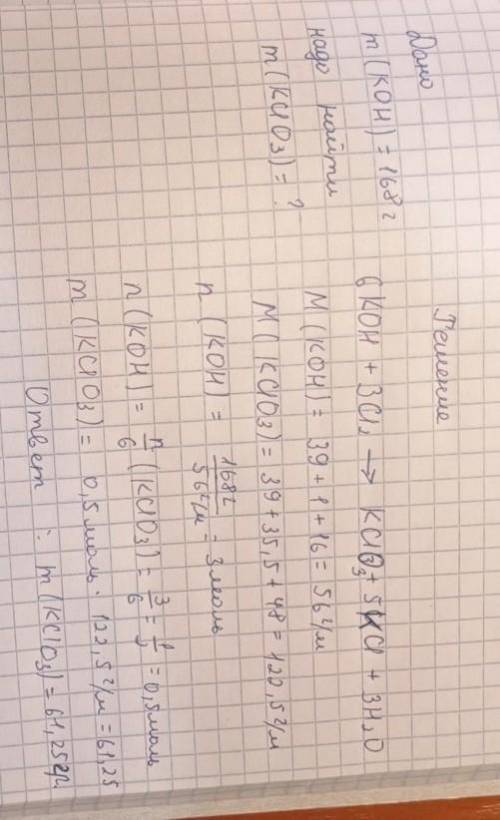 Дано
m(KOH) = 168г
надо найти
m(KClO3) = ?
Решение
6KOH + 3Cl2 → KClO3 + 5KCl + 3H2O
M(KOH) = 39+1+16 = 56г/м
M(KClO3) = 39+35,5+48 = 120,5г/м
n(KOH) = 168г/56г/м = 3моль
n(KOH) = n/6 (KClO3) = 3/6 = 1/2 = 0,5моль
m(KClO3) = 0,5моль · 122,5г/м = 61,25
Ответ : m(KClO3) = 61,25гр